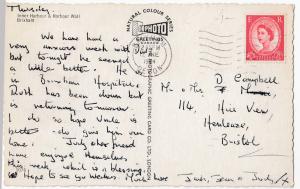 Thursday.
Inner Harbour & Harbour Wall
Brixham
We have had a
very anxious week with
but tonight he seemed
a little better. He
is in Brixham Hospital
Ruth has been down but
is returning to-morrow
I do so hope Uncle is
better - do give him our
love. Judy & her friend
have enjoyed themselves
this week which is a blessing.
Hope to see you
Much love Jack, Jean & Judy x
NATURAL COLOUR SERIES
PHOTO
GREETINGS
DEVON
GREETING CARD CO. LTD., LONDON
E R
D Campbell
Mr & Mrs
114,
Hill View,
Henleaze,
Bristol